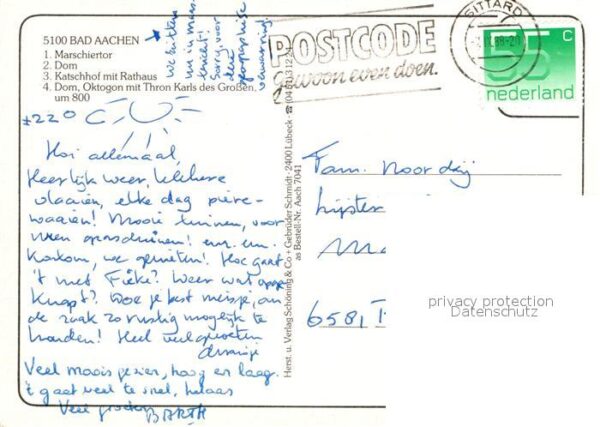 5100 BAD AACHEN
1. Marschiertor
2. Dom
3. Katschhof mit Rathaus
4. Dom, Oktogon mit Thron Karls des Großen,
um 800
We zitten
nu in maas-
tricht!
Sorry, voor
deze
geografische
verwarring.
POSTCODE
gewoon even doen.
SITTARD
55 C
nederland
±22°
Hoi allemaal,
Heerlijk weer, lekkere
vlaaien, elke dag piere-
waaien! Mooie tuinen, voor
mren! enz. enz.
Kortom, we genieten! Hoe gaat
't met Fieke? Weer wat opge-
knapt? Doe je best meisje, om
de zaak zo rustig mogelijk te
houden! Heel veel groeten
Veel moois gezien, hoog en laag.
't gaat veel te snel, helaas
Veel groeten BARTH
Herst. u. Verlag Schöning & Co + Gebrüder Schmidt · 2400 Lübeck · ☎ (0451) 3 12 24
as Bestell-Nr. Aach 7041
Fam. Noordij
Lijster
Ma
6581
privacy protection
Datenschutz